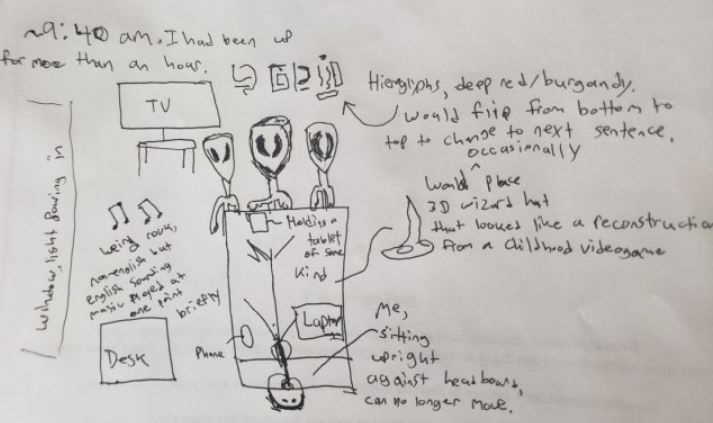 ~9:40 am. I had been up
for more than an hour.
TV
Hieroglyphs, deep red/burgandy.
would flip from bottom to
top to change to next sentence.
occasionally
Would place
3D wizard hat
that looked like a reconstruction
from a childhood videogame
Window, light flowing in
weird
non-english but
english sounding
music played at
one point
briefly
Holding a
tablet
of some
kind
Phone
Laptop
Desk
Me,
sitting
upright
against headboard,
can no longer move.